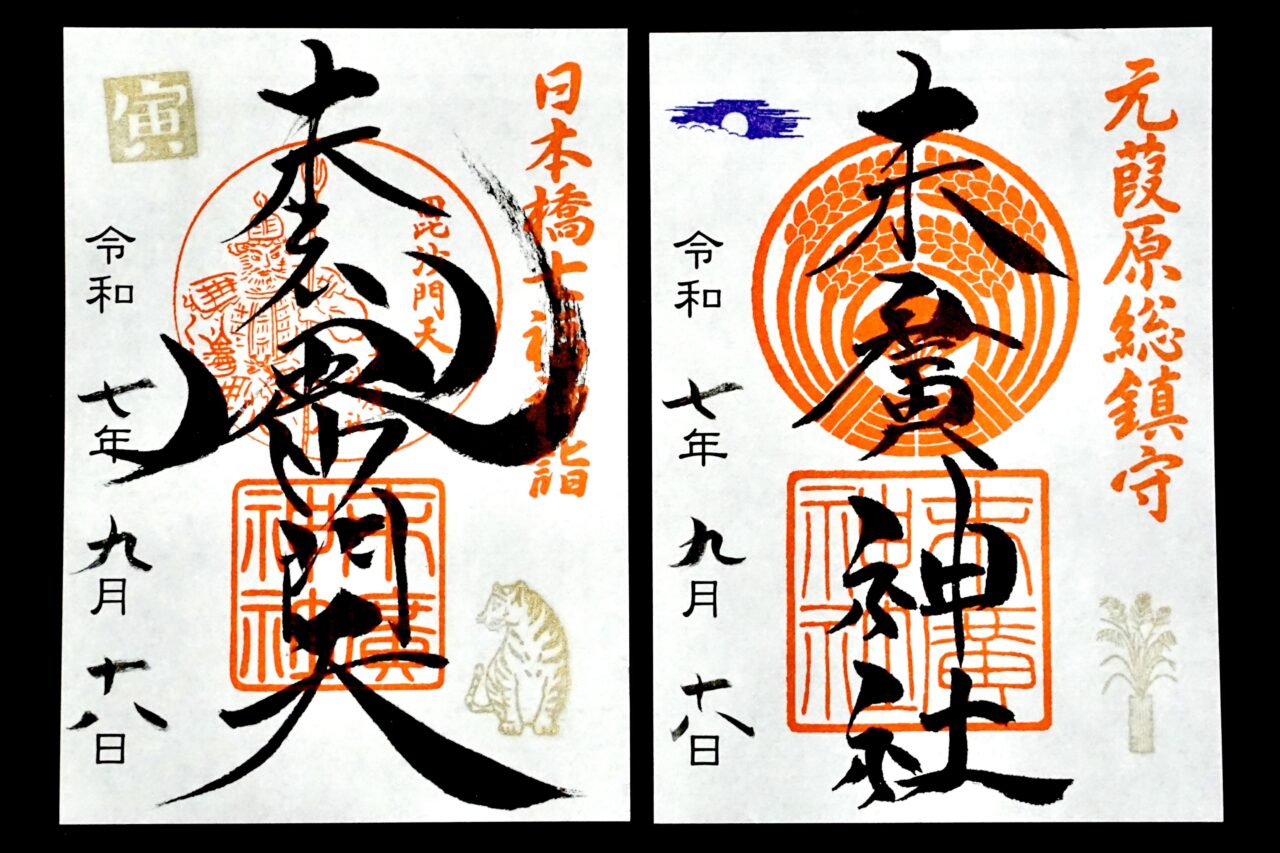 日本橋七福神詣
毘沙門天
毘沙門天
寅
令和 七年 九月 十八日
元葭原総鎮守
末廣神社
末廣神社
令和 七年 九月 十八日